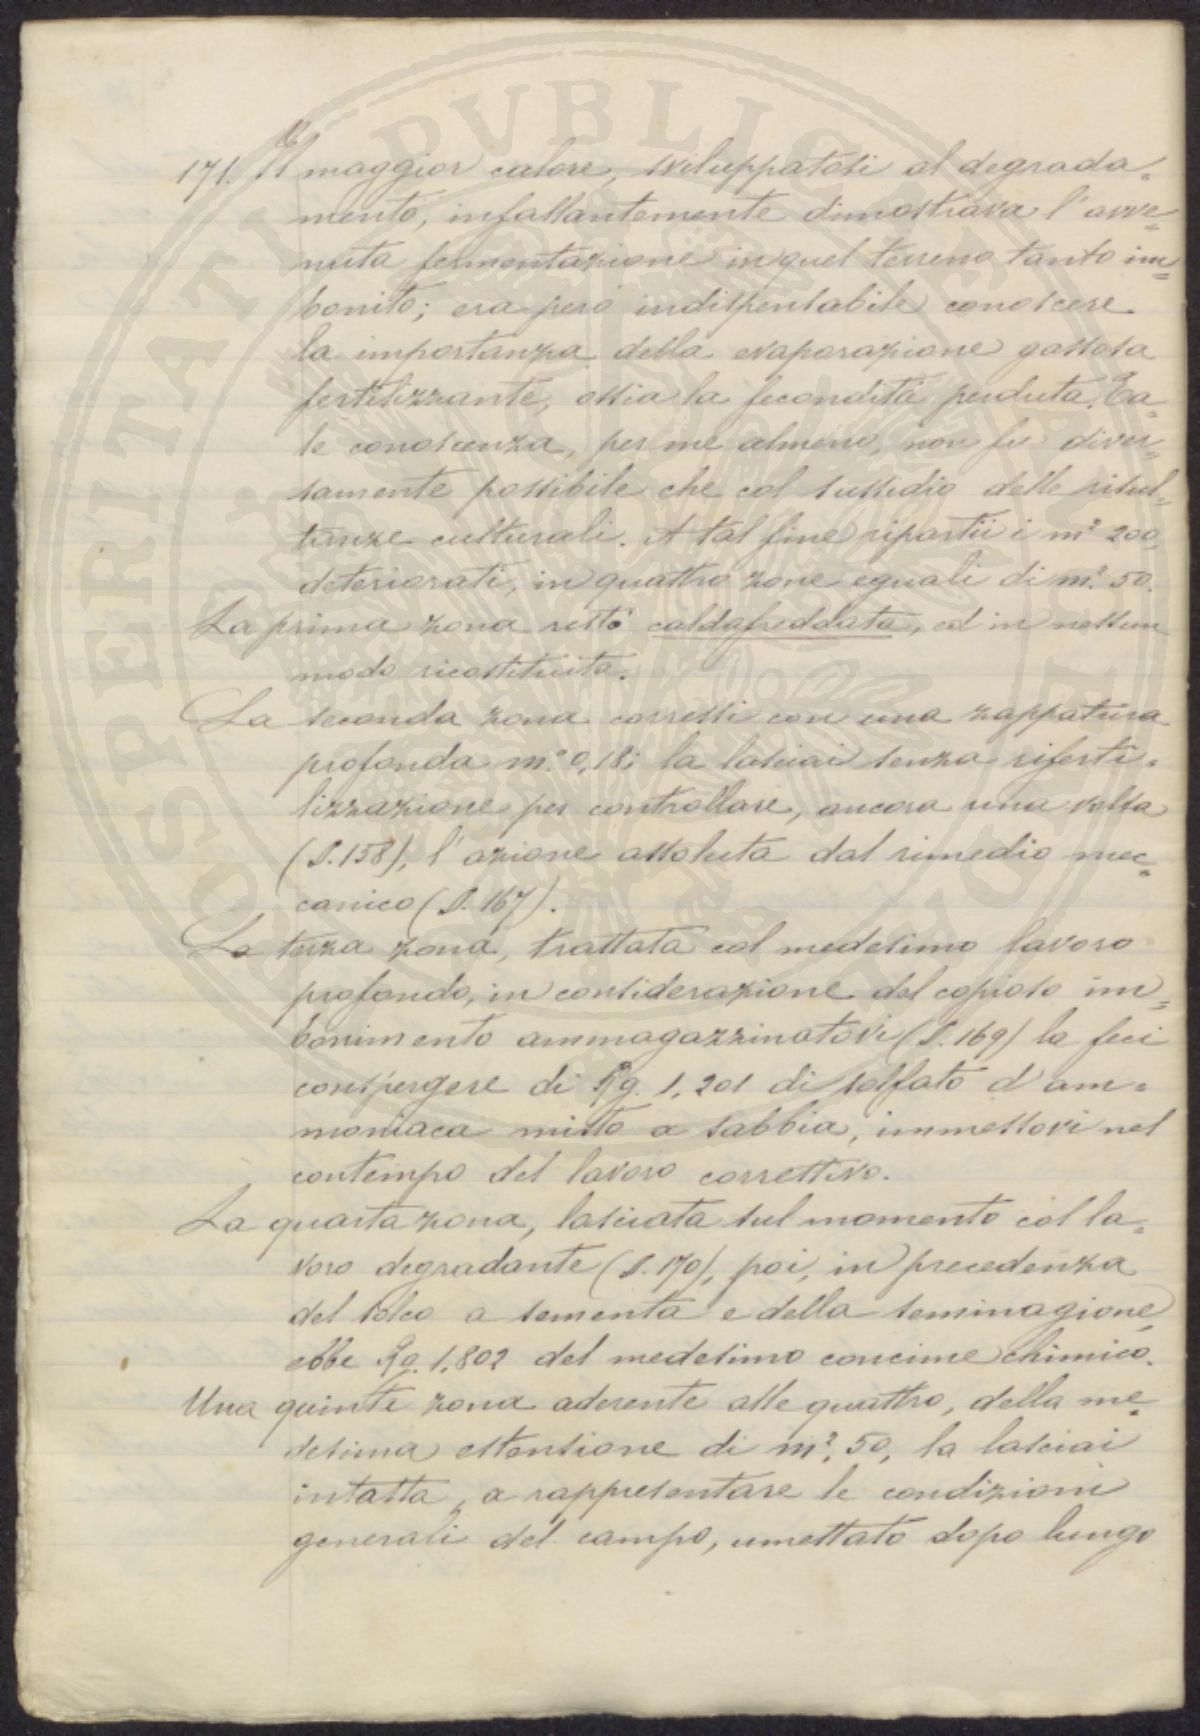 171. Il maggior calore, sviluppatosi al degrada=
mento, infallantemente dimostrava l'avve=
nuta fermentazione in quel terreno tanto im=
bonito; era però indispensabile conoscere
la importanza della evaporazione gassosa
fertilizzante, ossia la fecondità perduta. Ta=
le conoscenza, per me almeno, non fu diver=
samente possibile che col sussidio delle risul=
tanze culturali. A tal fine ripartii i m² 200,
deteriorati, in quattro zone eguali di m² 50.
La prima zona restò caldafreddata, ed in nessun
modo ricostituita.
La seconda zona corressi con una zappatura
profonda m.º 0,18; la lasciai senza riferti=
lizzazione per controllare, ancora una volta
(§. 158), l'azione assoluta dal rimedio mec=
canico (§. 167).
La terza zona, trattata col medesimo lavoro
profondo, in considerazione del copioso im=
bonimento ammagazzinatovi (§. 169) la feci
conspergere di Kg. 1,201 di solfato d'am=
moniaca misto a sabbia, immessovi nel
contempo del lavoro correttivo.
La quarta zona, lasciata sul momento col la=
voro degradante (§. 170), poi, in precedenza
del solco a sementa e della seminagione,
ebbe Kg. 1,802 del medesimo concime chimico.
Una quinta zona aderente alle quattro, della me=
desima estensione di m², 50, la lasciai
intatta, a rappresentare le condizioni
generali del campo, umettato dopo lungo
PUBLICAE PROSPERITATI